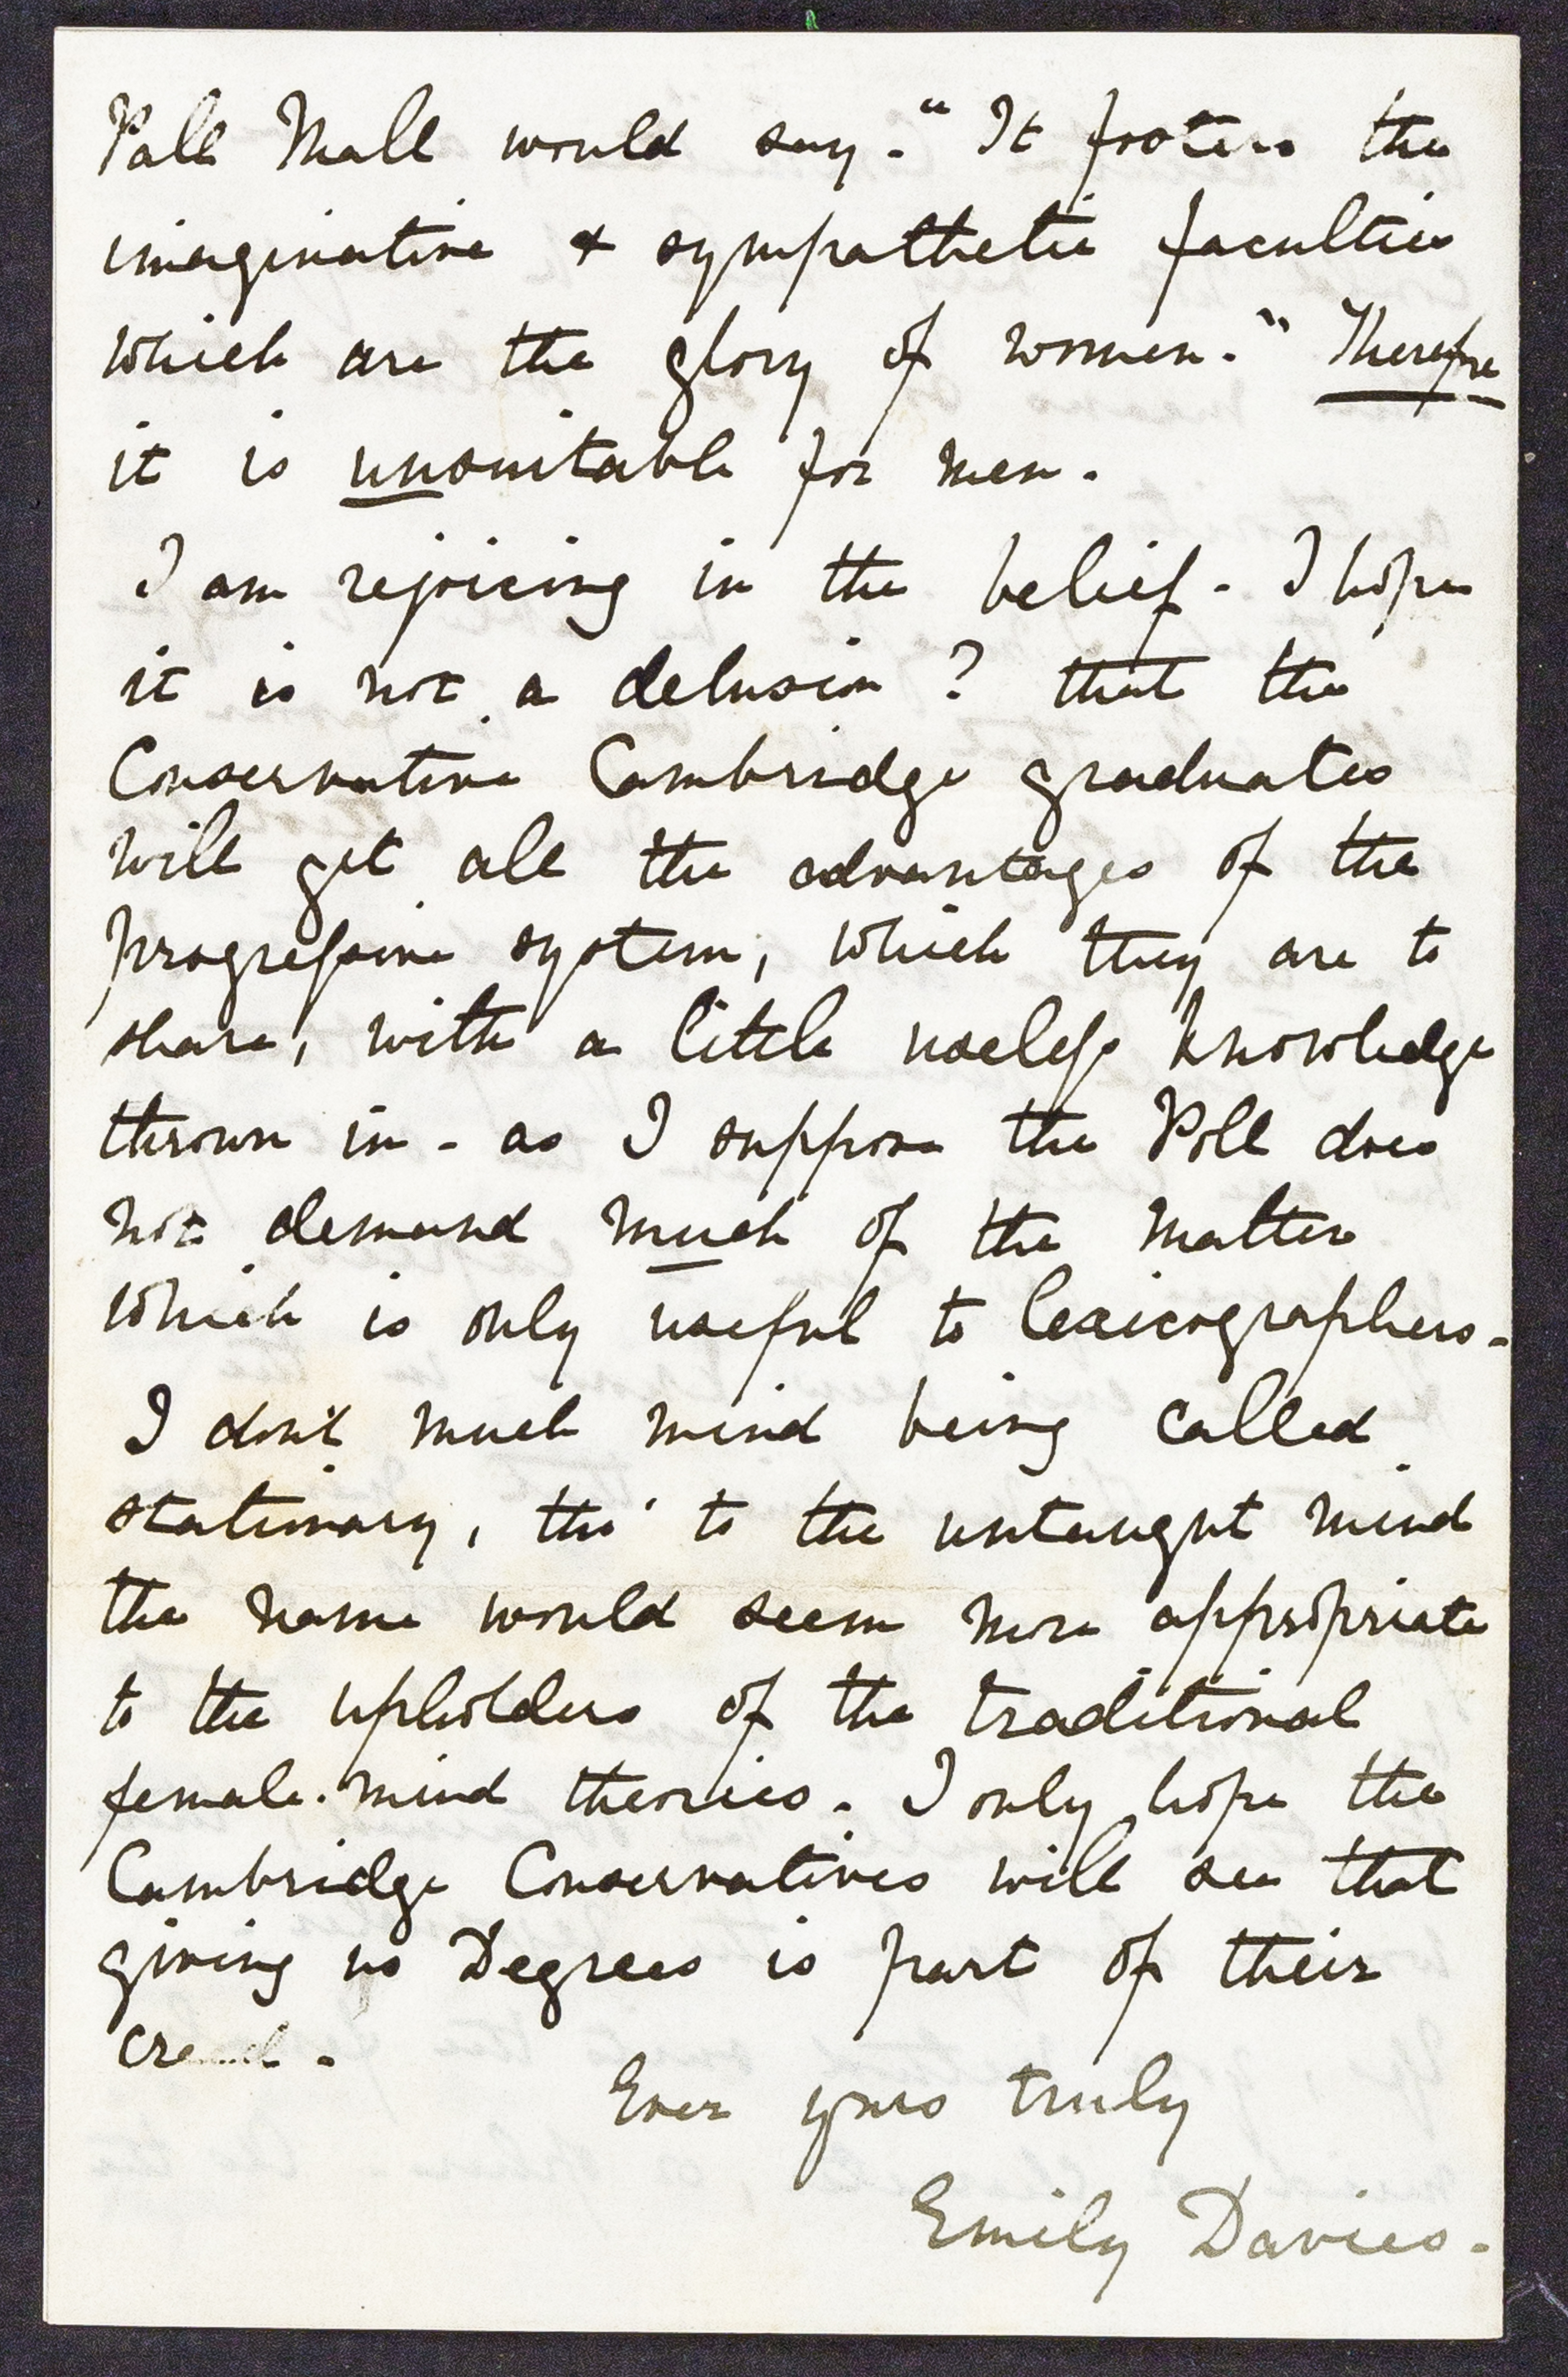 Pall Mall would say. "It fosters the
imaginative & sympathetic faculties
which are the glory of women." Therefore
it is unsuitable for men.
I am rejoicing in the belief - I hope
it is not a delusion? that the
Conservative Cambridge graduates
will get all the advantages of the
progressive system, which they are to
share, with a little useless knowledge
thrown in - as I suppose the Poll does
not demand much of the matter
which is only useful to lexicographers.
I don't much mind being called
stationary, tho' to the untaught mind
the name would seem more appropriate
to the upholders of the traditional
female-mind theories. I only hope the
Cambridge Conservatives will see that
giving us Degrees is part of their
creed.
Ever yours truly
Emily Davies.